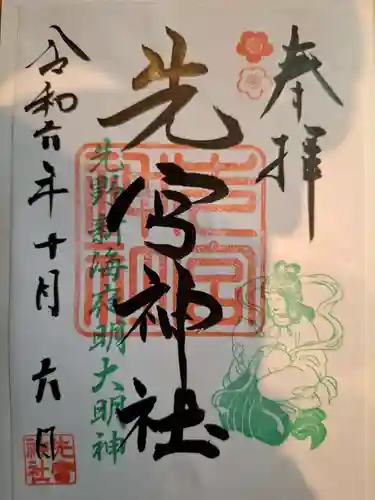 奉拝
先宮神社
先野新海有明大明神
令和六年十月六日
先宮神社